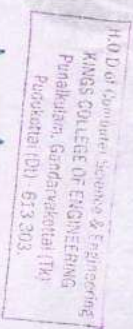 H.O.D of Computer Science & Engineering
KINGS COLLEGE OF ENGINEERING
Punalkulam, Gandarvakottai (TK)
Pudukottai (Dt) - 613 303